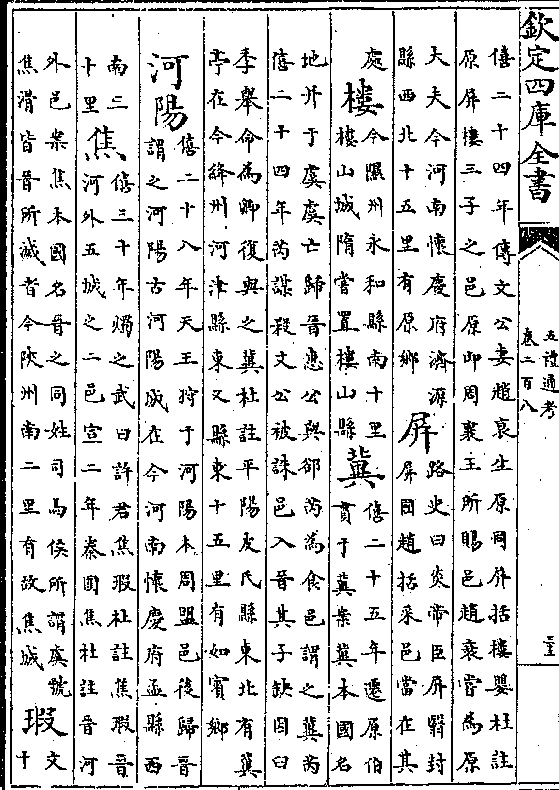 欽定四庫全書
五禮通考
卷二百八
僖二十四年傳文公妻趙衰生原同屏括樓嬰杜註
原屏樓三子之邑原即周襄王所賜邑趙衰嘗為原
大夫今河南懷慶府濟源
縣西北十五里有原鄉
屏
路史曰炎帝臣屏翳封
屏國趙括采邑當在其
處
樓
今隰州永和縣南十里
樓山城隋嘗置樓山縣
冀
僖二十五年遷原伯
貫于冀案冀本國名
地并于虞虞亡歸晉惠公與郤芮為食邑謂之冀芮
僖二十四年芮謀殺文公被誅邑入晉其子缺因臼
季舉命為卿復與之冀杜註平陽皮氏縣東北有冀
亭在今絳州河津縣東又縣東十五里有如賓鄉
河陽
僖二十八年天王狩于河陽本周盟邑後歸晉
謂之河陽古河陽城在今河南懷慶府孟縣西
南三
十里
焦
僖三十年燭之武曰許君焦瑕杜註焦瑕晉
河外五城之二邑宣二年秦圍焦杜註晉河
外邑案焦本國名晉之同姓司馬侯所謂虞虢
焦滑皆晉所滅者今陝州南二里有故焦城
瑕
文
十